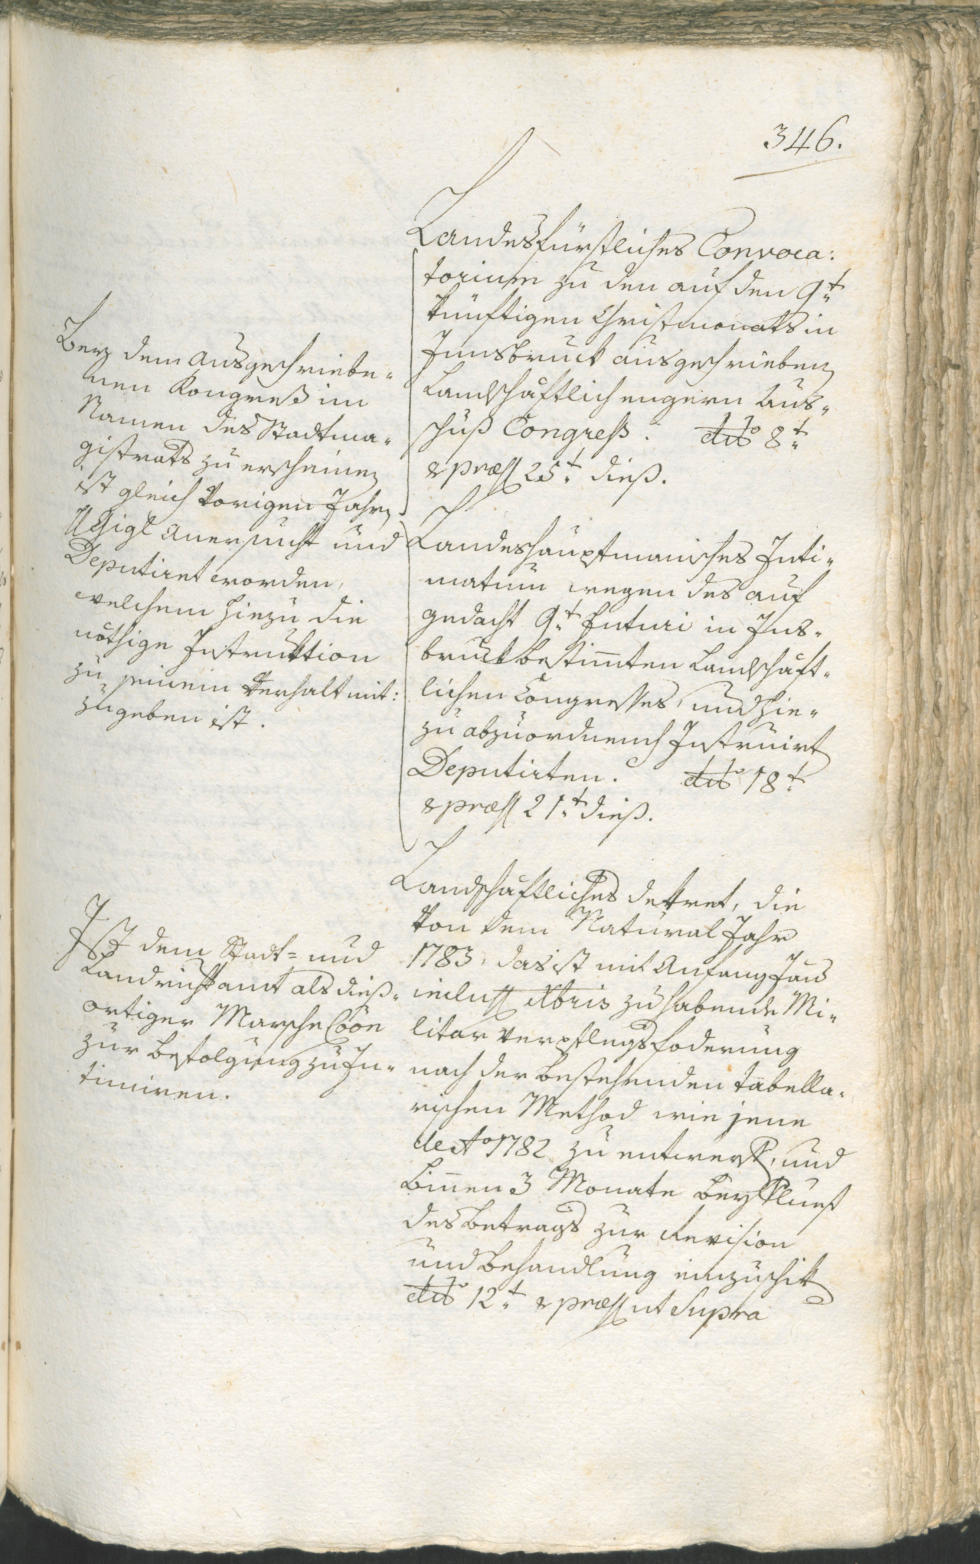 346.
Landesfürstliches Convoca:
torium zu den auf den 9t
künftigen Christmonats in
Innsbruck ausgeschrieben
Landschäftlich engern Aus-
schuß Congress. dto 8t
& præs 25t dieß.
Bey dem ausgeschriebe-
nen Kongreß im
Namen des Stadtma-
gistrats zu erscheinen
ist gleich vorigen Jahrs
Gigl anersucht und
Deputiret worden,
welchem hiezu die
nöthige Instruktion
zu seinem Verhalt mit:
zugeben ist.
Landeshauptmanisches Inti-
matum wegen des auf
gedacht 9t Futuri in Ins-
bruck bestimten Landschäft-
lichen Congresses, und hie-
zu abzuordnend Instruirt
Deputirten. dto 18t
& præs 21t dieß.
Landschäftliches Dekret, die
von dem Natural Jahr
1783, das ist mit Anfang Jan
inclus Xbris zu habende Mi-
litar Verpflegsfoderung
nach der bestehenden tabella-
rischen Method wie jene
de Ao 1782 zu entwerf, und
binnen 3 Monate bey Verlust
des Betrags zur Revision
und Behandlung einzuschik
dto 12t & præs ut Supra
Ist dem Stadt- und
Landrichtamt als dieß-
ortiger Marsche Coon
zur Befolgung zu In-
timiren.